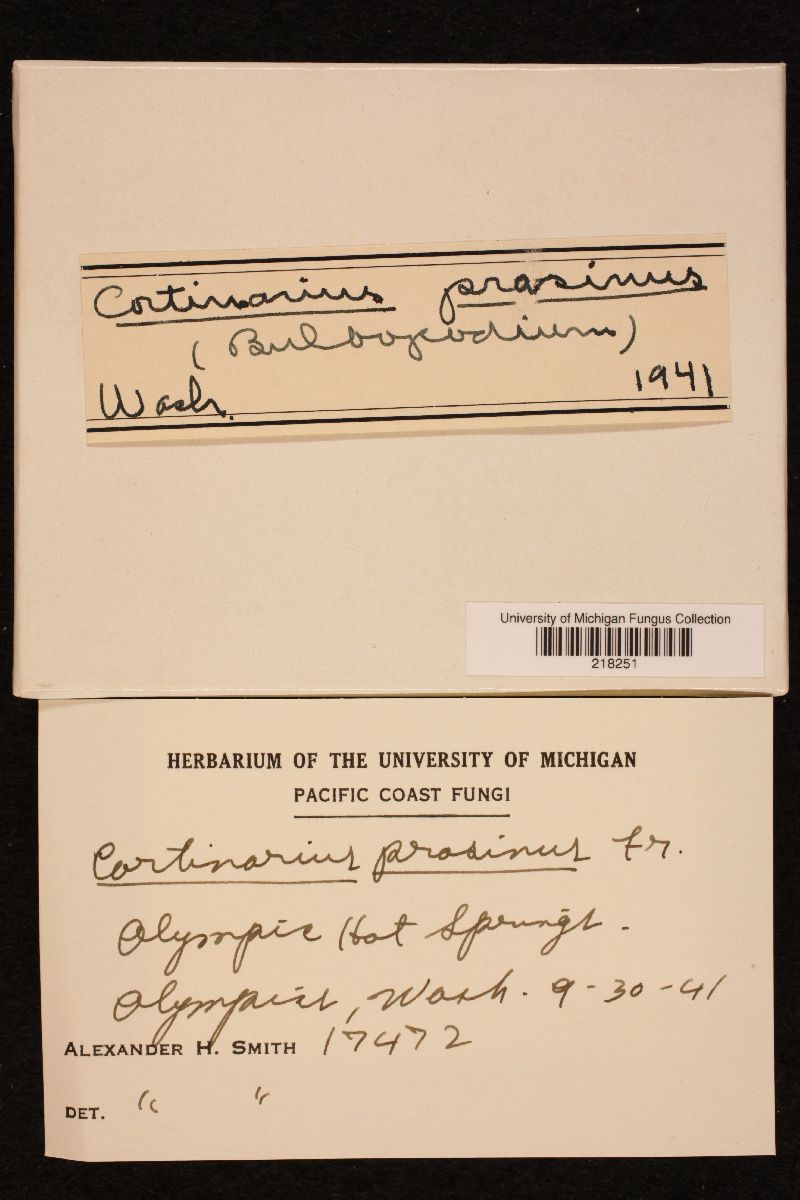 Cortinarius prasinus
(Bulbopodium)
Wash. 1941
University of Michigan Fungus Collection
218251
HERBARIUM OF THE UNIVERSITY OF MICHIGAN
PACIFIC COAST FUNGI
Cortinarius prasinus Fr.
Olympic Hot Springs.
Olympics, Wash. 9-30-41
ALEXANDER H. SMITH 17472
DET. " "